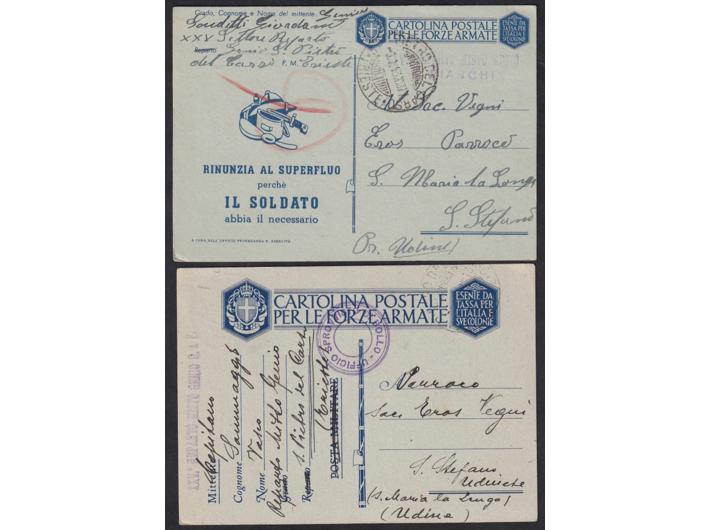 Grado, Cognome e Nome del mittente Genies
Giordano
XXV Settore Reparto
Reparto Genio S. Pietro
del Carso P. M. Trieste
RINUNZIA AL SUPERFLUO
perchè
IL SOLDATO
abbia il necessario
A CURA DELL'UFFICIO PROPAGANDA R. ESERCITO
CARTOLINA POSTALE
PER LE FORZE ARMATE
ESENTE DA
TASSA PER
L'ITALIA E
SVE COLONIE
Sac. Vegni
Eros Parroco
S. Maria la Longa
S. Stefano
Pr. Udine)
CARTOLINA POSTALE
PER LE FORZE ARMATE
ESENTE DA
TASSA PER
L'ITALIA E
SVE COLONIE
UFFICIO
XXV° REPARTO MISTO GENIO G. A F.
Mittente Capitano
Cognome
Nome Vasco
Grado Reparto Misto Genio
Reparto S. Pietro del Carso
(Trieste)
POSTA MILITARE
Parroco
Sac. Eros Vegni
S. Stefano
Udinese
(S. Maria la Longa)
(Udine)